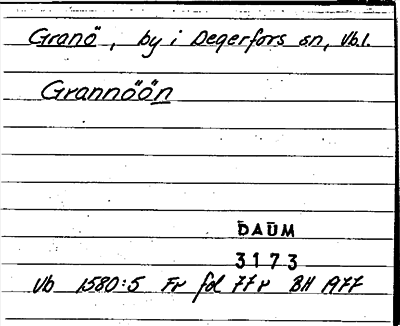 Granö, by i Degerfors sn, Vb.l.
Grannöön
DAUM
3173
Vb 1580:5 Fr fol 77r BH 1977